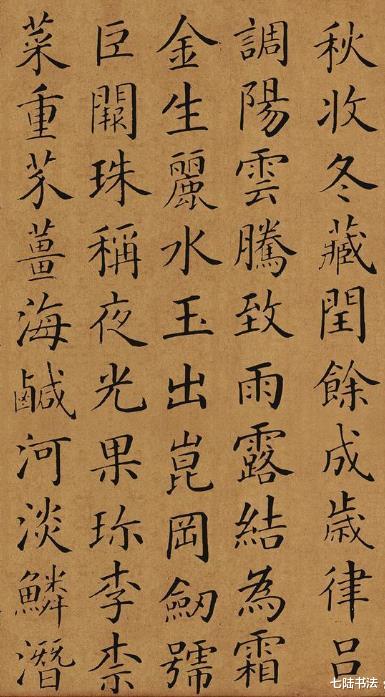 秋收冬藏閏餘成歲律呂
調陽雲騰致雨露結為霜
金生麗水玉出崑岡劒號
巨闕珠稱夜光果珎李柰
菜重芥薑海鹹河淡鱗潛
七陆书法